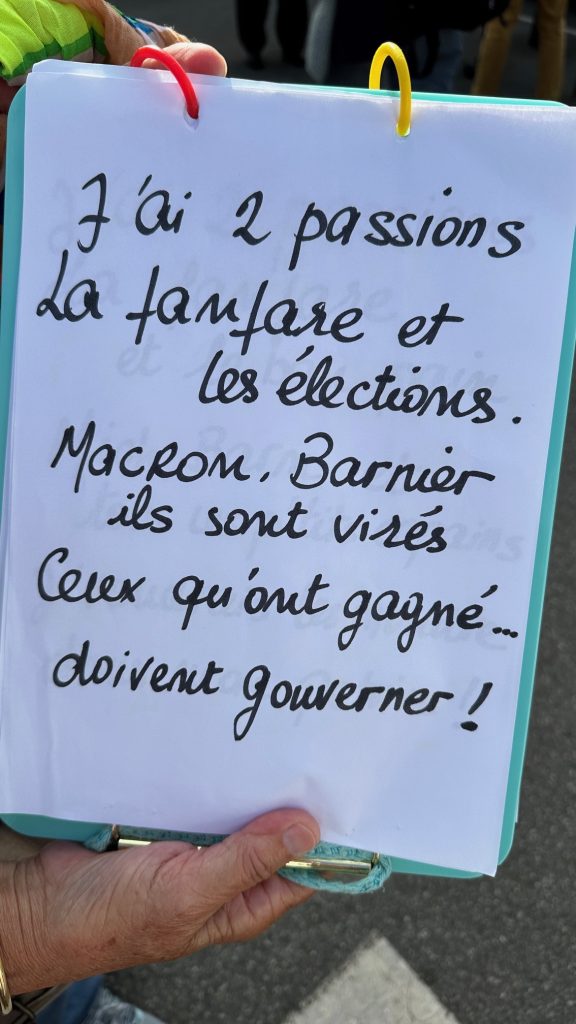 J'ai 2 passions
La fanfare et
les élections.
Macron, Barnier
ils sont virés
Ceux qu'ont gagné...
doivent gouverner !